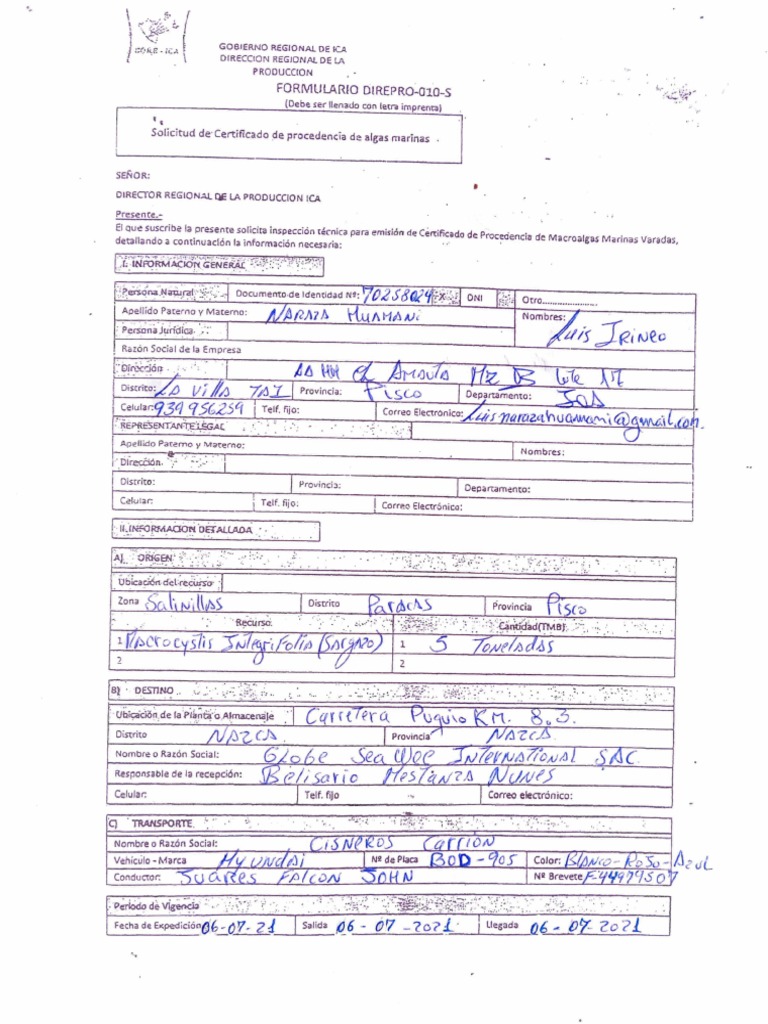 GORE - ICA
GOBIERNO REGIONAL DE ICA
DIRECCION REGIONAL DE LA
PRODUCCION
FORMULARIO DIREPRO-010-S
(Debe ser llenado con letra imprenta)
Solicitud de Certificado de procedencia de algas marinas
SEÑOR:
DIRECTOR REGIONAL DE LA PRODUCCION ICA
Presente.-
El que suscribe la presente solicita inspección técnica para emisión de Certificado de Procedencia de Macroalgas Marinas Varadas,
detallando a continuación la información necesaria:
I. INFORMACION GENERAL
Persona Natural Documento de Identidad Nº: 70258024 X DNI Otro......................
Apellido Paterno y Materno: NARAZA HUAMANI Nombres: Luis IRINEO
Persona Jurídica
Razón Social de la Empresa
Dirección AA HH El AMAUTA MZ B lote 17
Distrito: LA VILLA TAI Provincia: PISCO Departamento: ICA
Celular: 939956259 Telf. fijo: Correo Electrónico: Luisnarazahuamani@gmail.com
REPRESENTANTE LEGAL
Apellido Paterno y Materno: Nombres:
Dirección
Distrito: Provincia: Departamento:
Celular: Telf. fijo: Correo Electrónico:
II. INFORMACION DETALLADA
A) ORIGEN
Ubicación del recurso
Zona Salinillas Distrito PARACAS Provincia PISCO
Recurso Cantidad(TMB)
1 MACROCYSTIS INTEGRIFOLIA (SARGAZO) 1 5 TONELADAS
2 2
B) DESTINO
Ubicación de la Planta o Almacenaje Carretera Puquio KM. 8.3.
Distrito NAZCA Provincia NAZCA
Nombre o Razón Social: GLOBE SEA WEE INTERNATIONAL SAC
Responsable de la recepción: Belisario MESTANZA NUNES
Celular: Telf. fijo Correo electrónico:
C) TRANSPORTE
Nombre o Razón Social: CISNEROS CARRION
Vehículo - Marca HYUNDAI Nº de Placa BOD-905 Color: BLANCO-ROJO-AZUL
Conductor: JUARES FALCON JOHN Nº Brevete F44979507
Periodo de Vigencia
Fecha de Expedición 06-07-21 Salida 06-07-2021 Llegada 06-07-2021